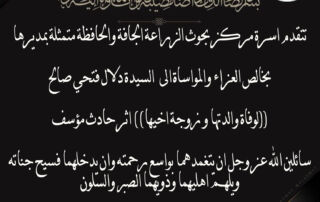 تتقدم اسرة مركز بحوث الزراعة الجافة والحافظة متمثلة بمديرها
بخالص العزاء والمواساة الى السيدة دلال فتحي صالح
((لوفاة والدتها و زوجة اخيها)) اثر حادث مؤسف
سائلين الله عز وجل ان يتغمدهما بواسع رحمته وان يدخلهما فسيح جناته
ويلهم اهليهما وذويهما الصبر والسلون